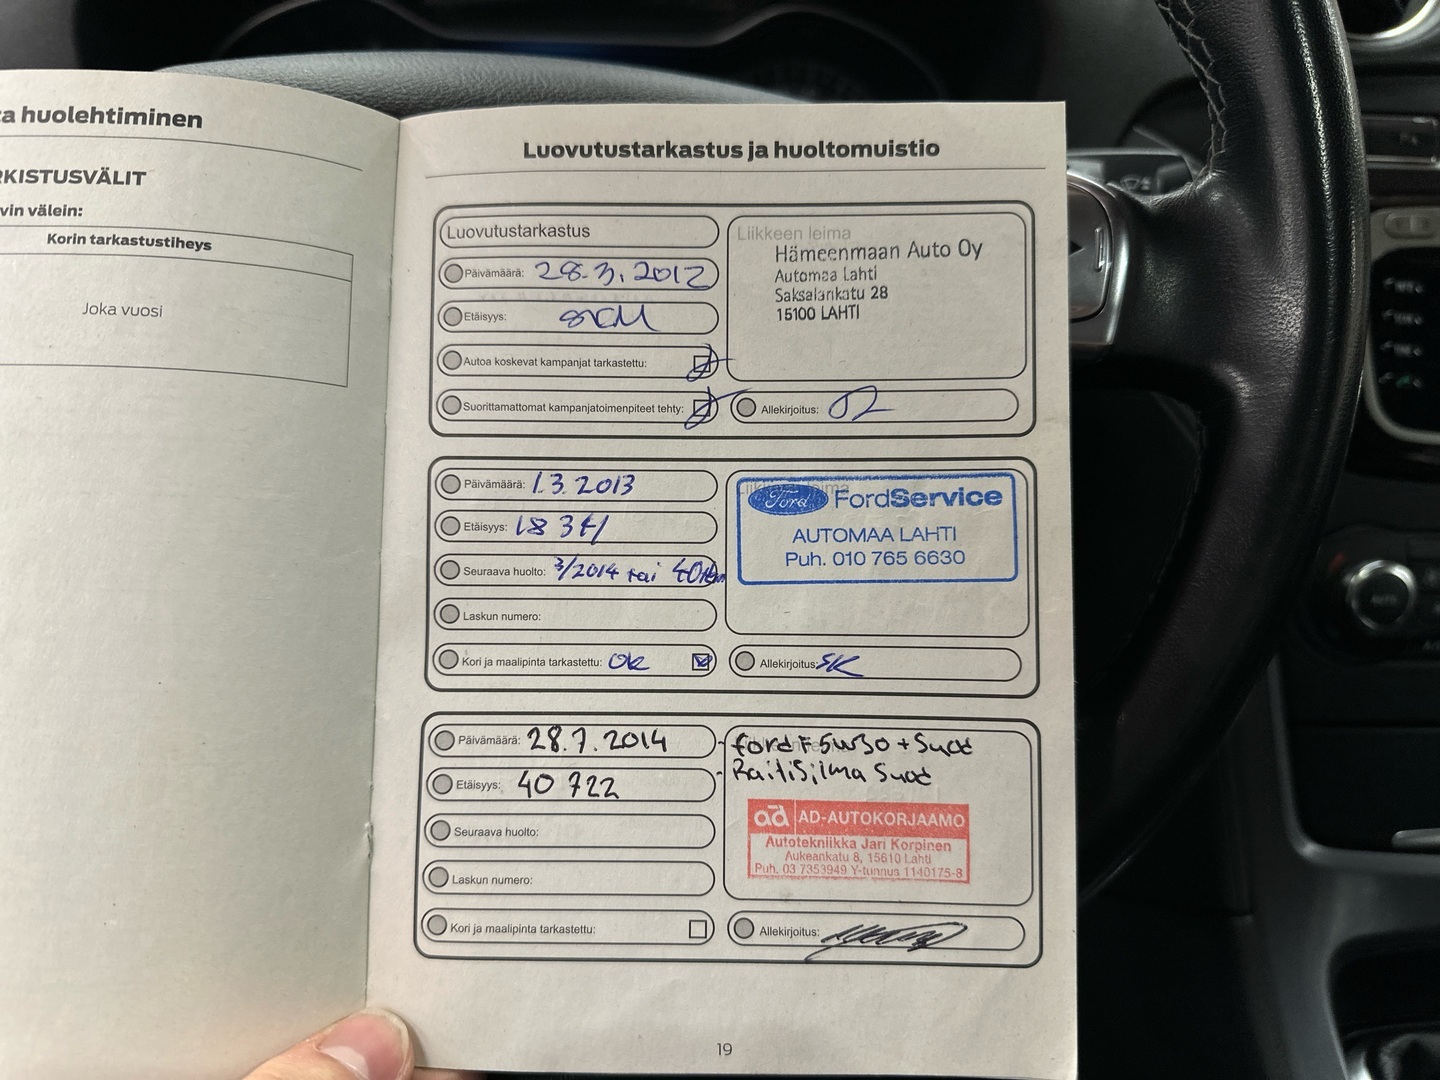 ta huolehtiminen
RKISTUSVÄLIT
vin välein:
Korin tarkastustiheys
Joka vuosi
Luovutustarkastus ja huoltomuistio
Luovutustarkastus
Päivämäärä: 28.3.2012
Etäisyys:
Autoa koskevat kampanjat tarkastettu:
Suorittamattomat kampanjatoimenpiteet tehty:
Liikkeen leima
Hämeenmaan Auto Oy
Automaa Lahti
Saksalankatu 28
15100 LAHTI
Allekirjoitus:
Päivämäärä: 1.3.2013
Etäisyys:
Seuraava huolto: 3/2014 tai
Laskun numero:
Kori ja maalipinta tarkastettu: ok
Liikkeen leima
Ford FordService
AUTOMAA LAHTI
Puh. 010 765 6630
Allekirjoitus: SK
Päivämäärä: 28.7.2014
Etäisyys: 40 722
Seuraava huolto:
Laskun numero:
Kori ja maalipinta tarkastettu:
- Ford F 5W30 + Suod
- Raitisilma Suod
ad AD-AUTOKORJAAMO
Autotekniikka Jari Korpinen
Aukeankatu 8, 15610 Lahti
Puh. 03 7353949 Y-tunnus 1140175-8
Allekirjoitus:
19